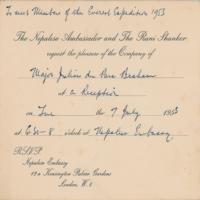 To meet Members of the Everest Expedition 1953
The Nepalese Ambassador and The Rani Shanker
request the pleasure of the Company of
Major
at a Reception
on Tue the 7 July 1953
at 6.30-8 o'clock at Nepalese Embassy
R.S.V.P.
Nepalese Embassy
12a Kensington Palace Gardens
London, W.8